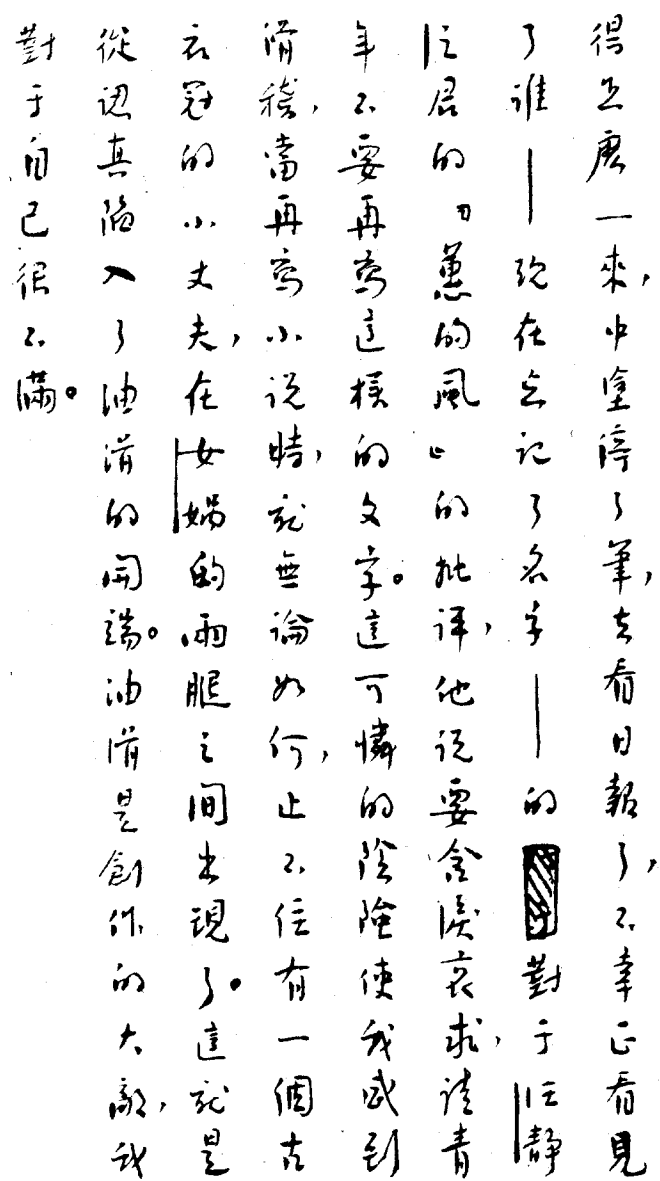 得怎麽一來，中塗停了筆，去看日報了，不幸正看見
了誰——現在忘記了名字——的對于汪靜
汪君的『蕙的風』的批評，他说要含淚哀求，請青
年不要再寫這樣的文字。這可憐的陰險使我感到
滑稽，當再寫小说時，就無論如何，止不住有一個古
衣冠的小丈夫，在女媧的兩腿之間出現了。這就是
從認真陷入了油滑的開端。油滑是創作的大敵，我
對于自己很不滿。